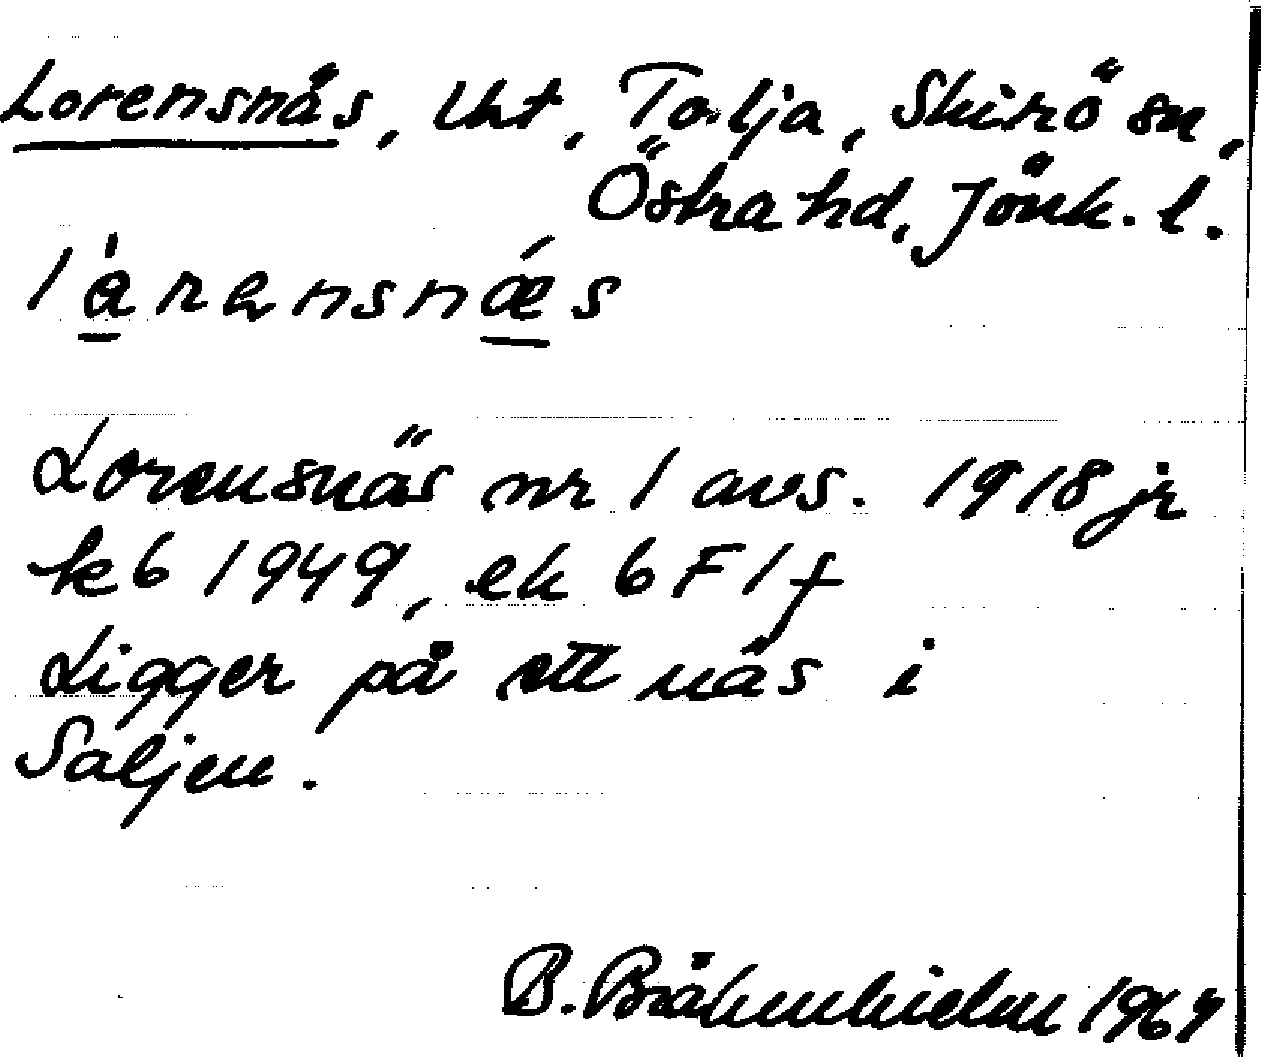 Lorensnäs, lht, Talja, Skirö sn,
Östra hd, Jönk. l.
l å̀ r a n s n ǽ s
Lorensnäs nr 1 avs. 1918 jr
k6 1949, ek 6 F 1 f
Ligger på ett näs i
Saljen.
B. Bråkenhielm 1967